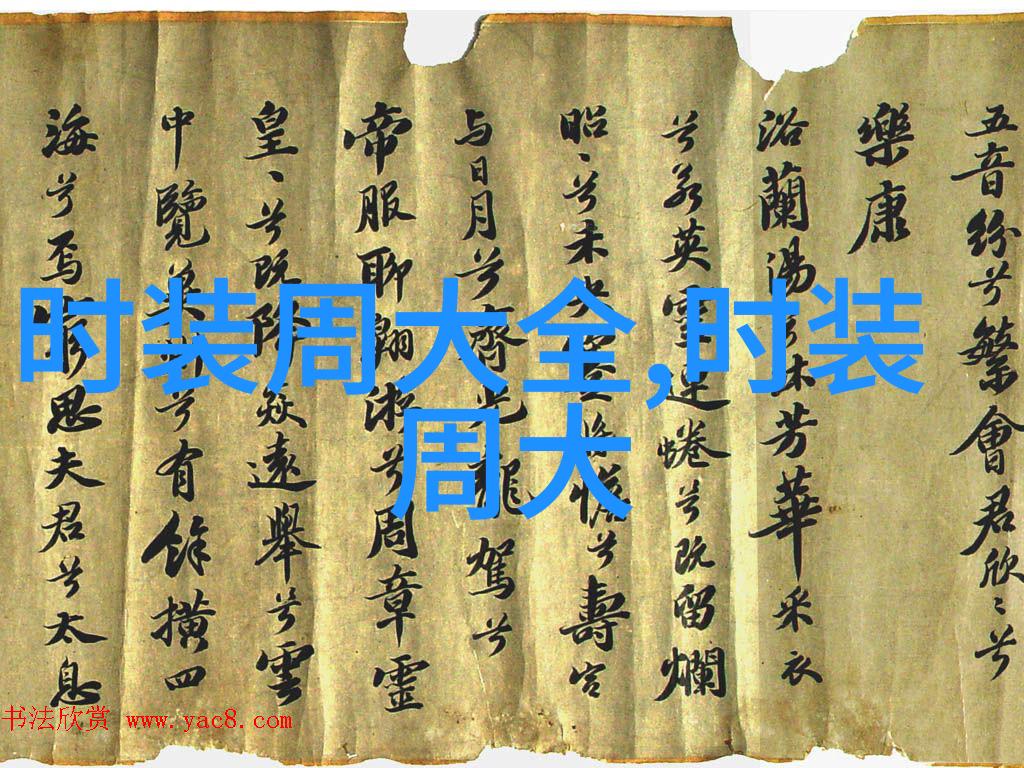 五音紛兮繁會君欣〻兮
樂康
浴蘭湯兮沐芳華采衣
兮若英靈連蜷兮既留爛
昭〻兮未央蹇將憺兮壽宮
与日月兮齊光龍駕兮
帝服聊翱游兮周章靈
皇〻兮既降猋遠舉兮雲
中覽冀州兮有餘橫四
海兮焉窮思夫君兮太息
时装周大全,时装
周大
书法欣赏 www.yac8.com